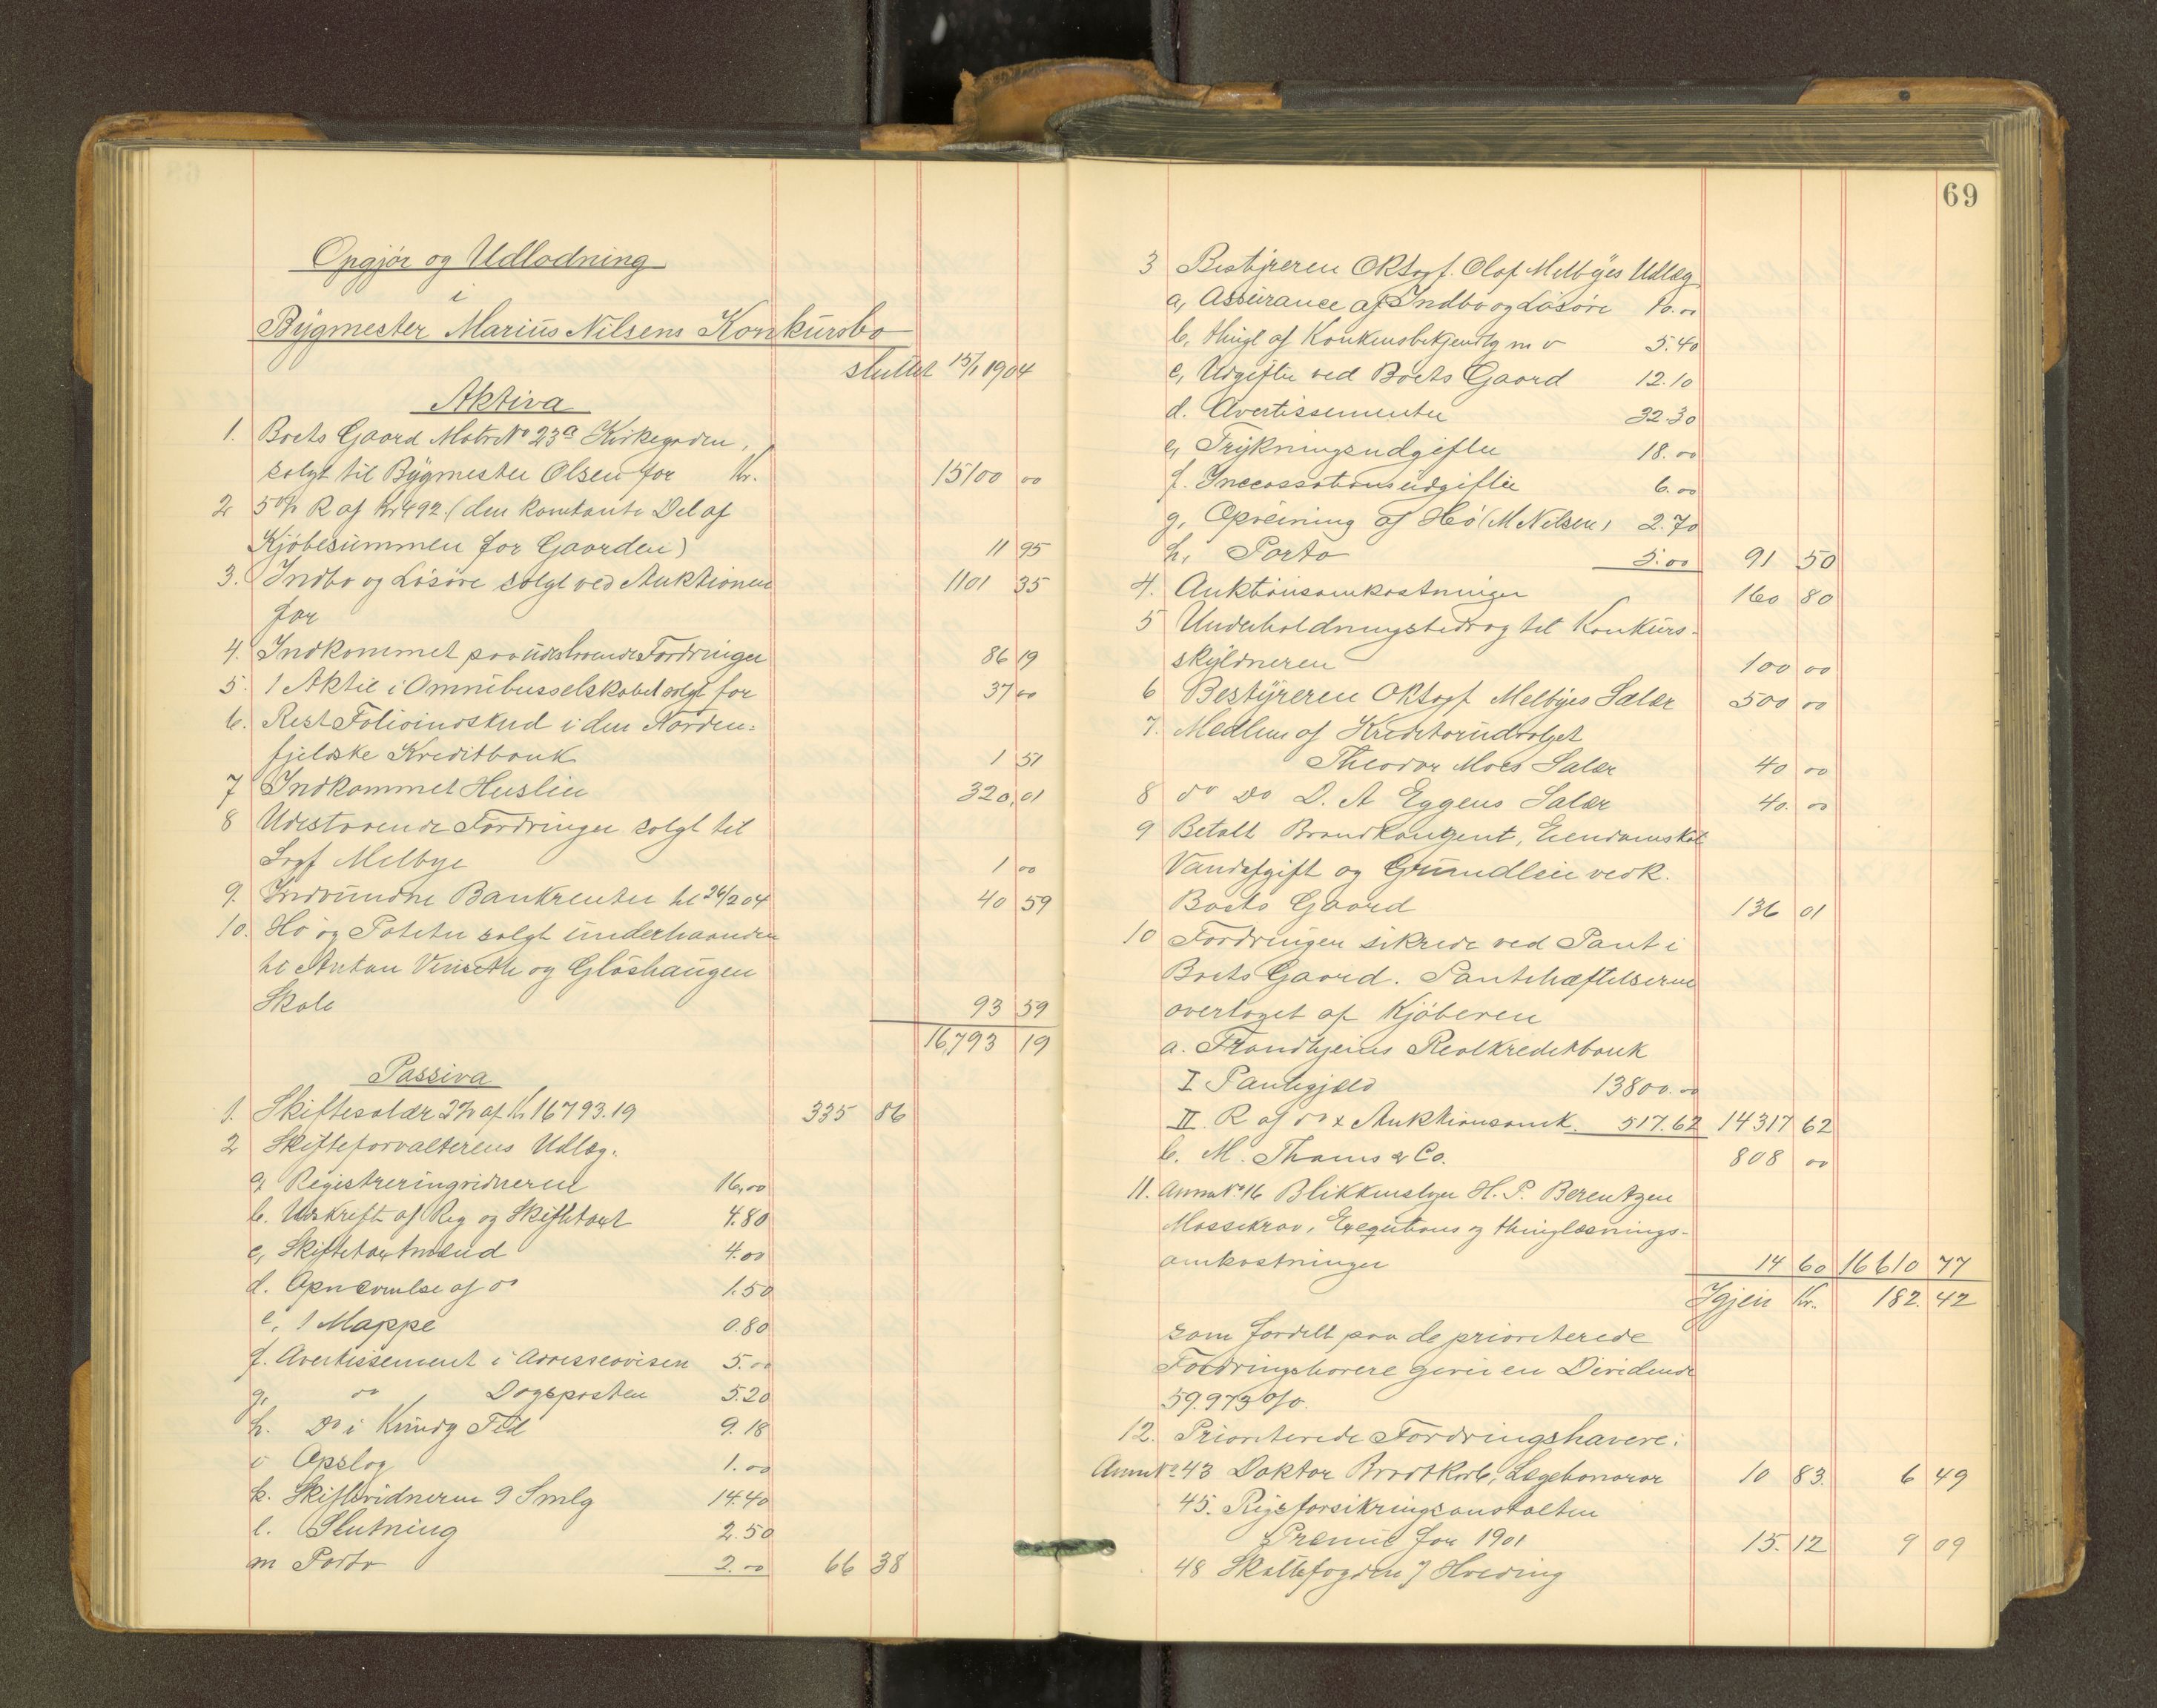 Opgjør og Udlodning
i
Bygmester Marius Nilsens Konkursbo
sluttet 15/1 1904
Aktiva
1. Boets Gaard Matr No 23a Kirkegaden,
solgt til Bygmester Olsen for Kr. 15100 00
2 5% R af Kr 492. (den kontante Del af
Kjøbesummen for Gaarden) 11 95
3. Indbo og Løsøre solgt ved Auktionen 1101 35
for
4. Indkommet paa udestaaende Fordringer 86 19
5. 1 Aktie i Omnibusselskabet solgt for 37 00
6. Rest Folioindskud i den Norden=
fjeldske Kreditbank 1 51
7 Indkommet Husleie 320,01
8 Udestaaende Fordringer solgt til
Sagf Melbye 1 00
9. Indvundne Bankrenter til 26/2 04 40 59
10. Hø og Poteter solgt underhaanden
til Anton Vinseth og Gløshaugen
Skole 93 59
16,793 19
Passiva
1. Skiftesalær 2% af Kr 16793.19 335 86
2 Skifteforvalterens Udlæg.
a Registreringvidnerne 16,00
b. Udskrift af Reg og Skiftetaxt 4.80
c, Skiftetaxtmænd 4.00
d. Opnævnelse af do 1.50
e, 1 Mappe 0.80
f. Avertissement i Adresseavisen 5.00
g, do Dagsposten 5.20
h. Do i Kundg Tid 9.18
i Opslag 1.00
k. Skiftevidnerne 9 Smlg 14.40
l. Slutning 2.50
m Porto 2.00 66 38
69
3 Bestyreren ORsagf. Olaf Melbyes Udlæg
a, Assurance af Indbo og Løsøre 10.00
b, thingl af Konkursbekjendtg m v 5.40
c, Udgifter ved Boets Gaard 12.10
d. Avertissementer 32.30
e, Trykningsudgifter 18.00
f. Inccassationsudgifter 6.00
g, Opveining af Hø (M Nilsen) 2.70
h, Porto 5.00 91 50
4. Auktionsomkostninger 160 80
5 Underholdningsbidrag til Konkurs-
skyldneren 100 00
6 Bestyreren ORsagf Melbyes Salær 500 00
7. Medlem af Kreditorudvalget
Theodor Moes Salær 40 00
8 do Do D. A Eggens Salær 40. 00
9 Betalt Brandkontingent, Eiendomsskat
Vandafgift og Grundleie vedk.
Boets Gaard 136 01
10 Fordringer sikrede ved Pant i
Boets Gaard. Pantehæftelserne
overtaget af Kjøberen
a. Trondhjems Realkreditbank
I Pantegjæld 13800.00
II. R af do x Auktionsomk. 517.62 14317 62
b. M. Thams & Co. 808 00
11. Anm No. 16 Blikkenslager H. P. Berentzen
Massekrav, Exequtions og thinglæsnings-
omkostninger 14 60 16610 77
Igjen Kr. 182. 42
som fordelt paa de prioriterede
Fordringshavere giver en Dividende
59.973 0/0.
12. Prioriterede Fordringshavere:
Anm No. 43 Doktor Brodtkorb, Lægehonorar 10 83. 6 49
45. Rigsforsikringsanstalten
Præmie for 1901 15. 12 9 09
48 Skattefogden J Hveding